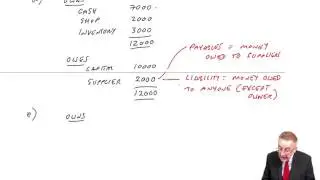 OWNS
CASH 7000
SHOP 2000
INVENTORY 3000
12000
PAYABLES = MONEY
OWED TO SUPPLIERS
OWES
CAPITAL 10000
SUPPLIER 2000
LIABILITY = MONEY OWED
TO ANYONE (EXCEPT
OWNER)
12000
e) OWNS